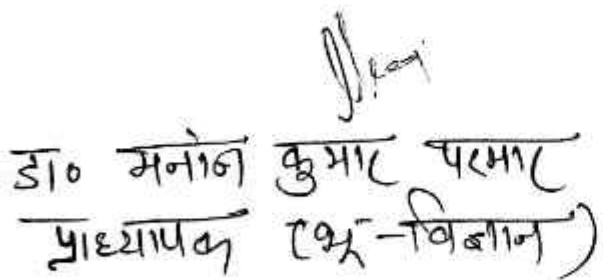 डा० मनोज कुमार परमार
प्राध्यापक (भू-विज्ञान)